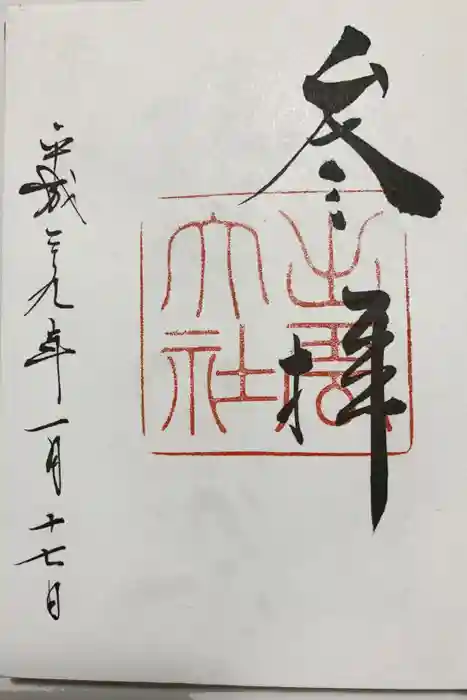 参拝
出雲
大社
平成二九年一月十七日